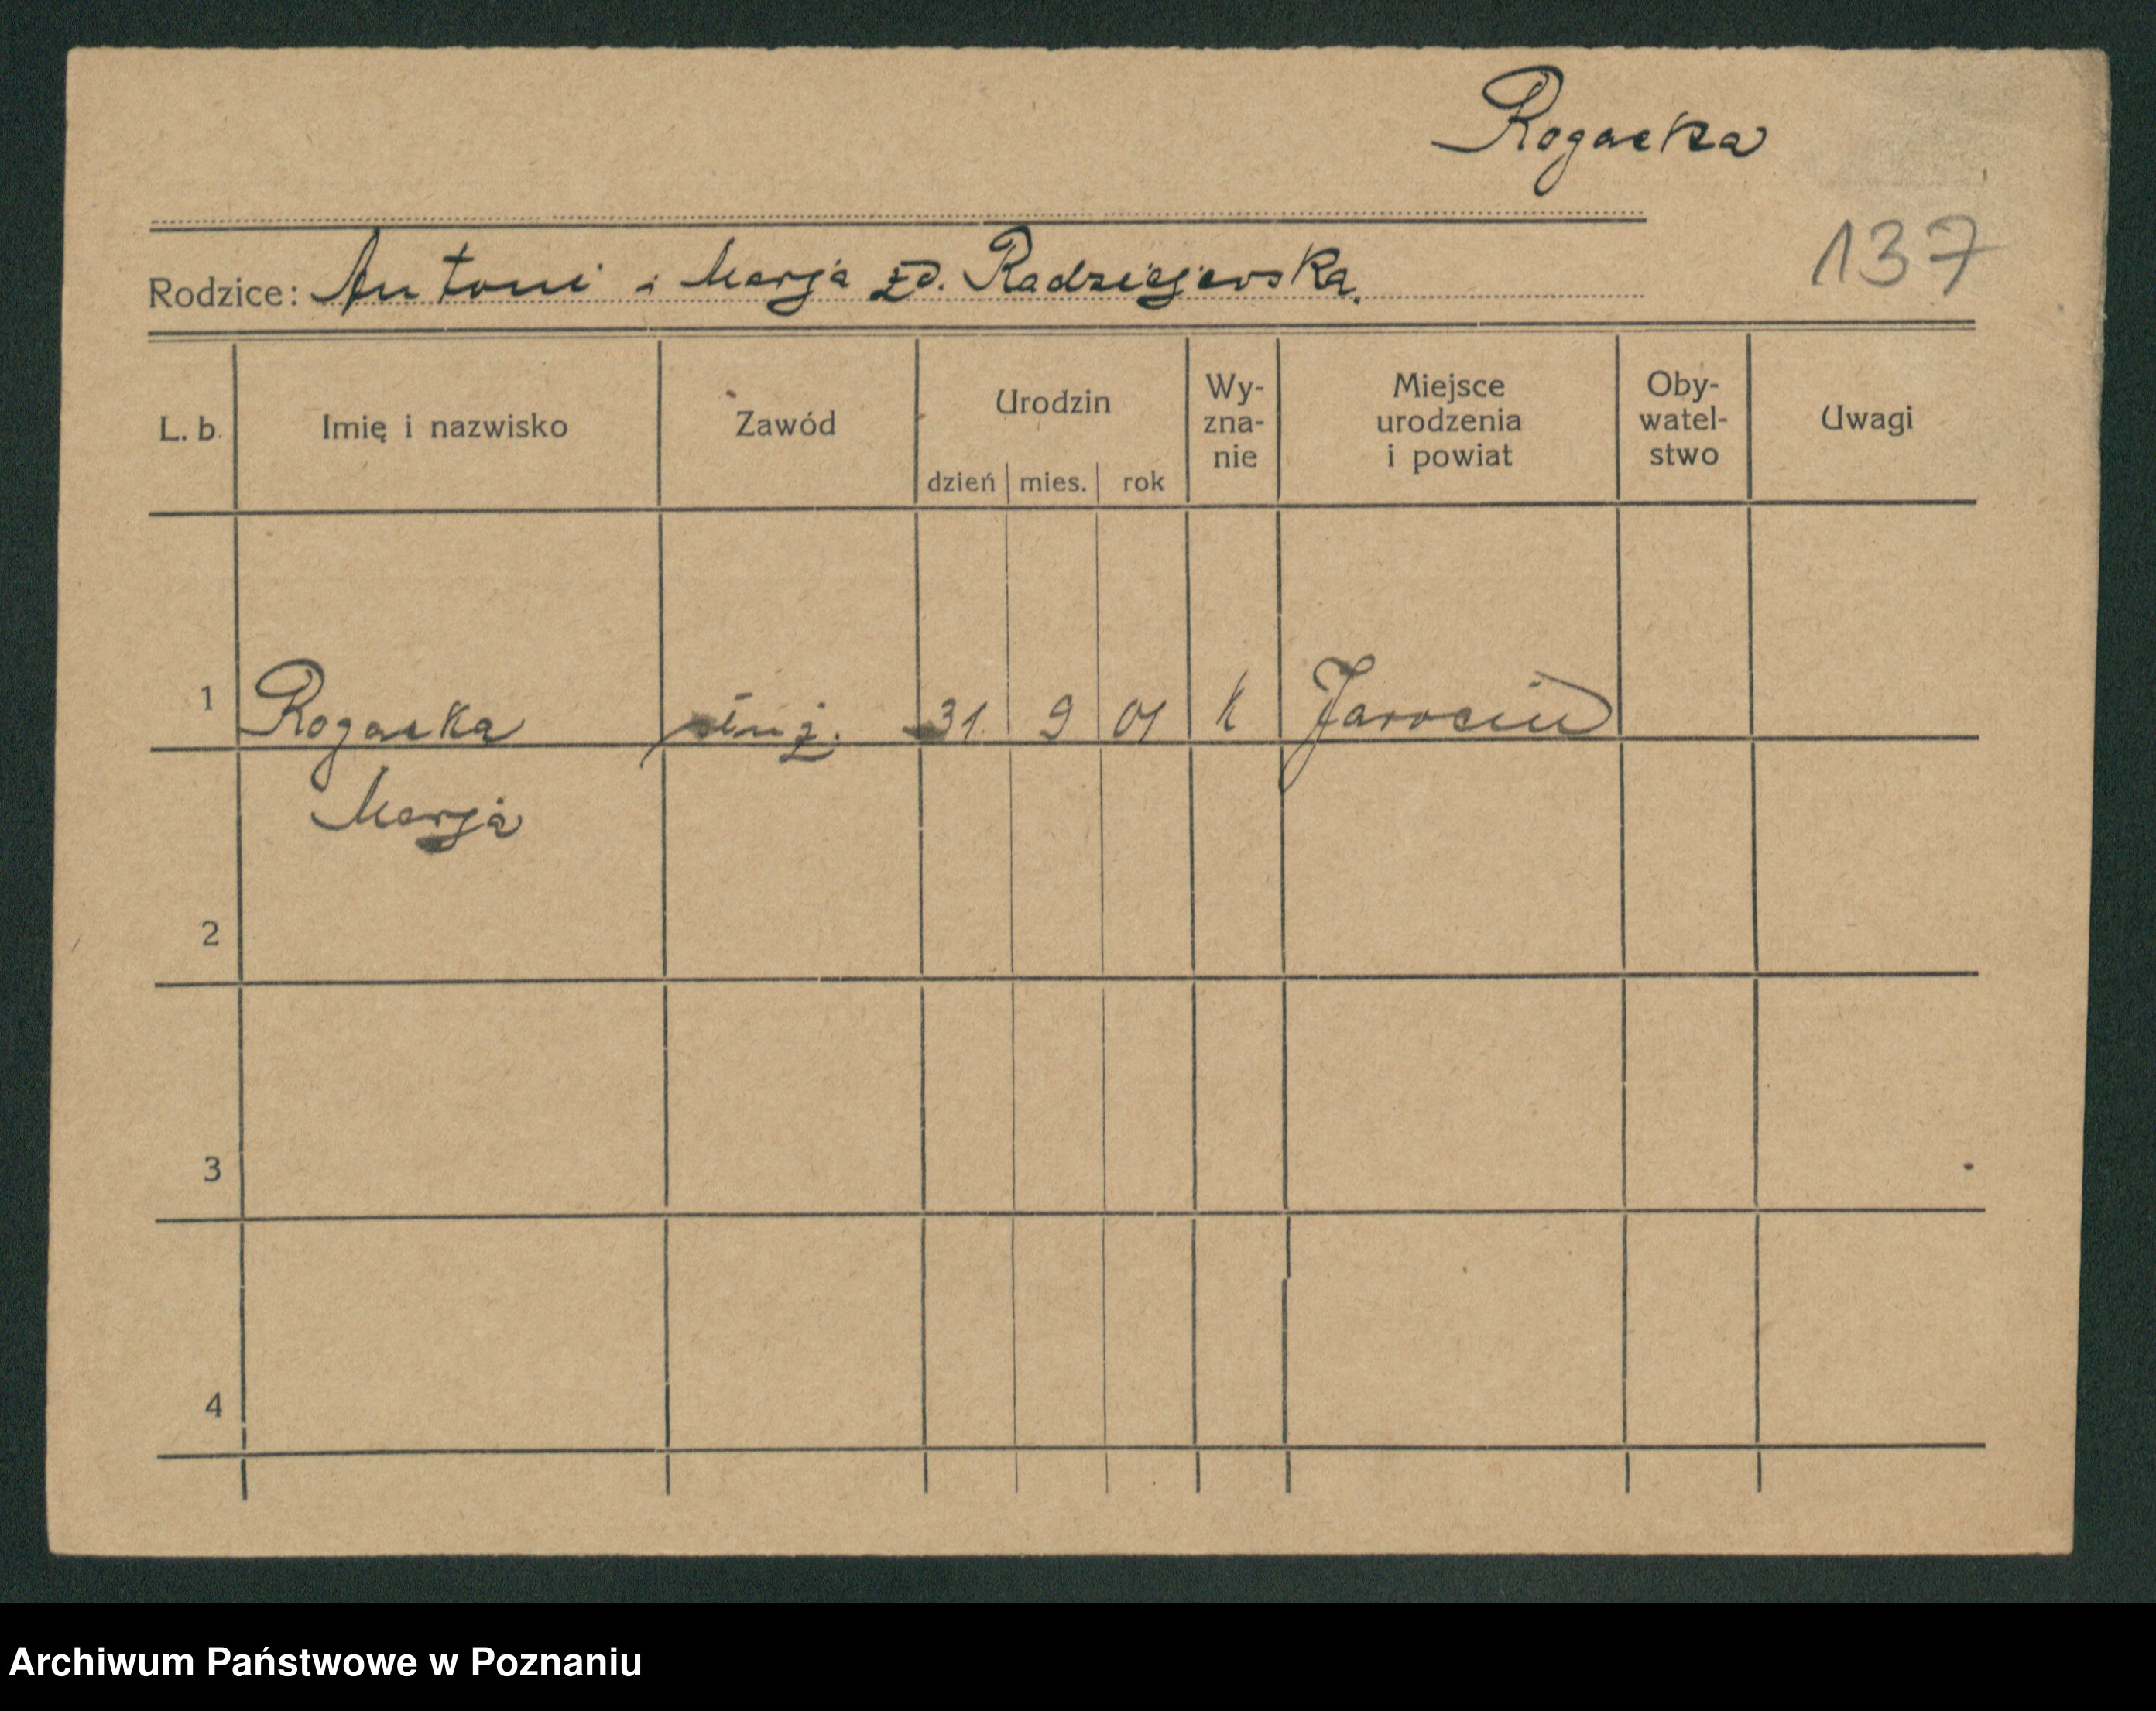 Rogacka
137
Rodzice: Antoni i Marja zd. Radziejewska.
L. b. Imię i nazwisko Zawód Urodzin dzień mies. rok Wy-zna-nie Miejsce urodzenia i powiat Oby-watel-stwo Uwagi
1 Rogacka 31. 9 01 k Jarocin
Marja
2
3
4
Archiwum Państwowe w Poznaniu